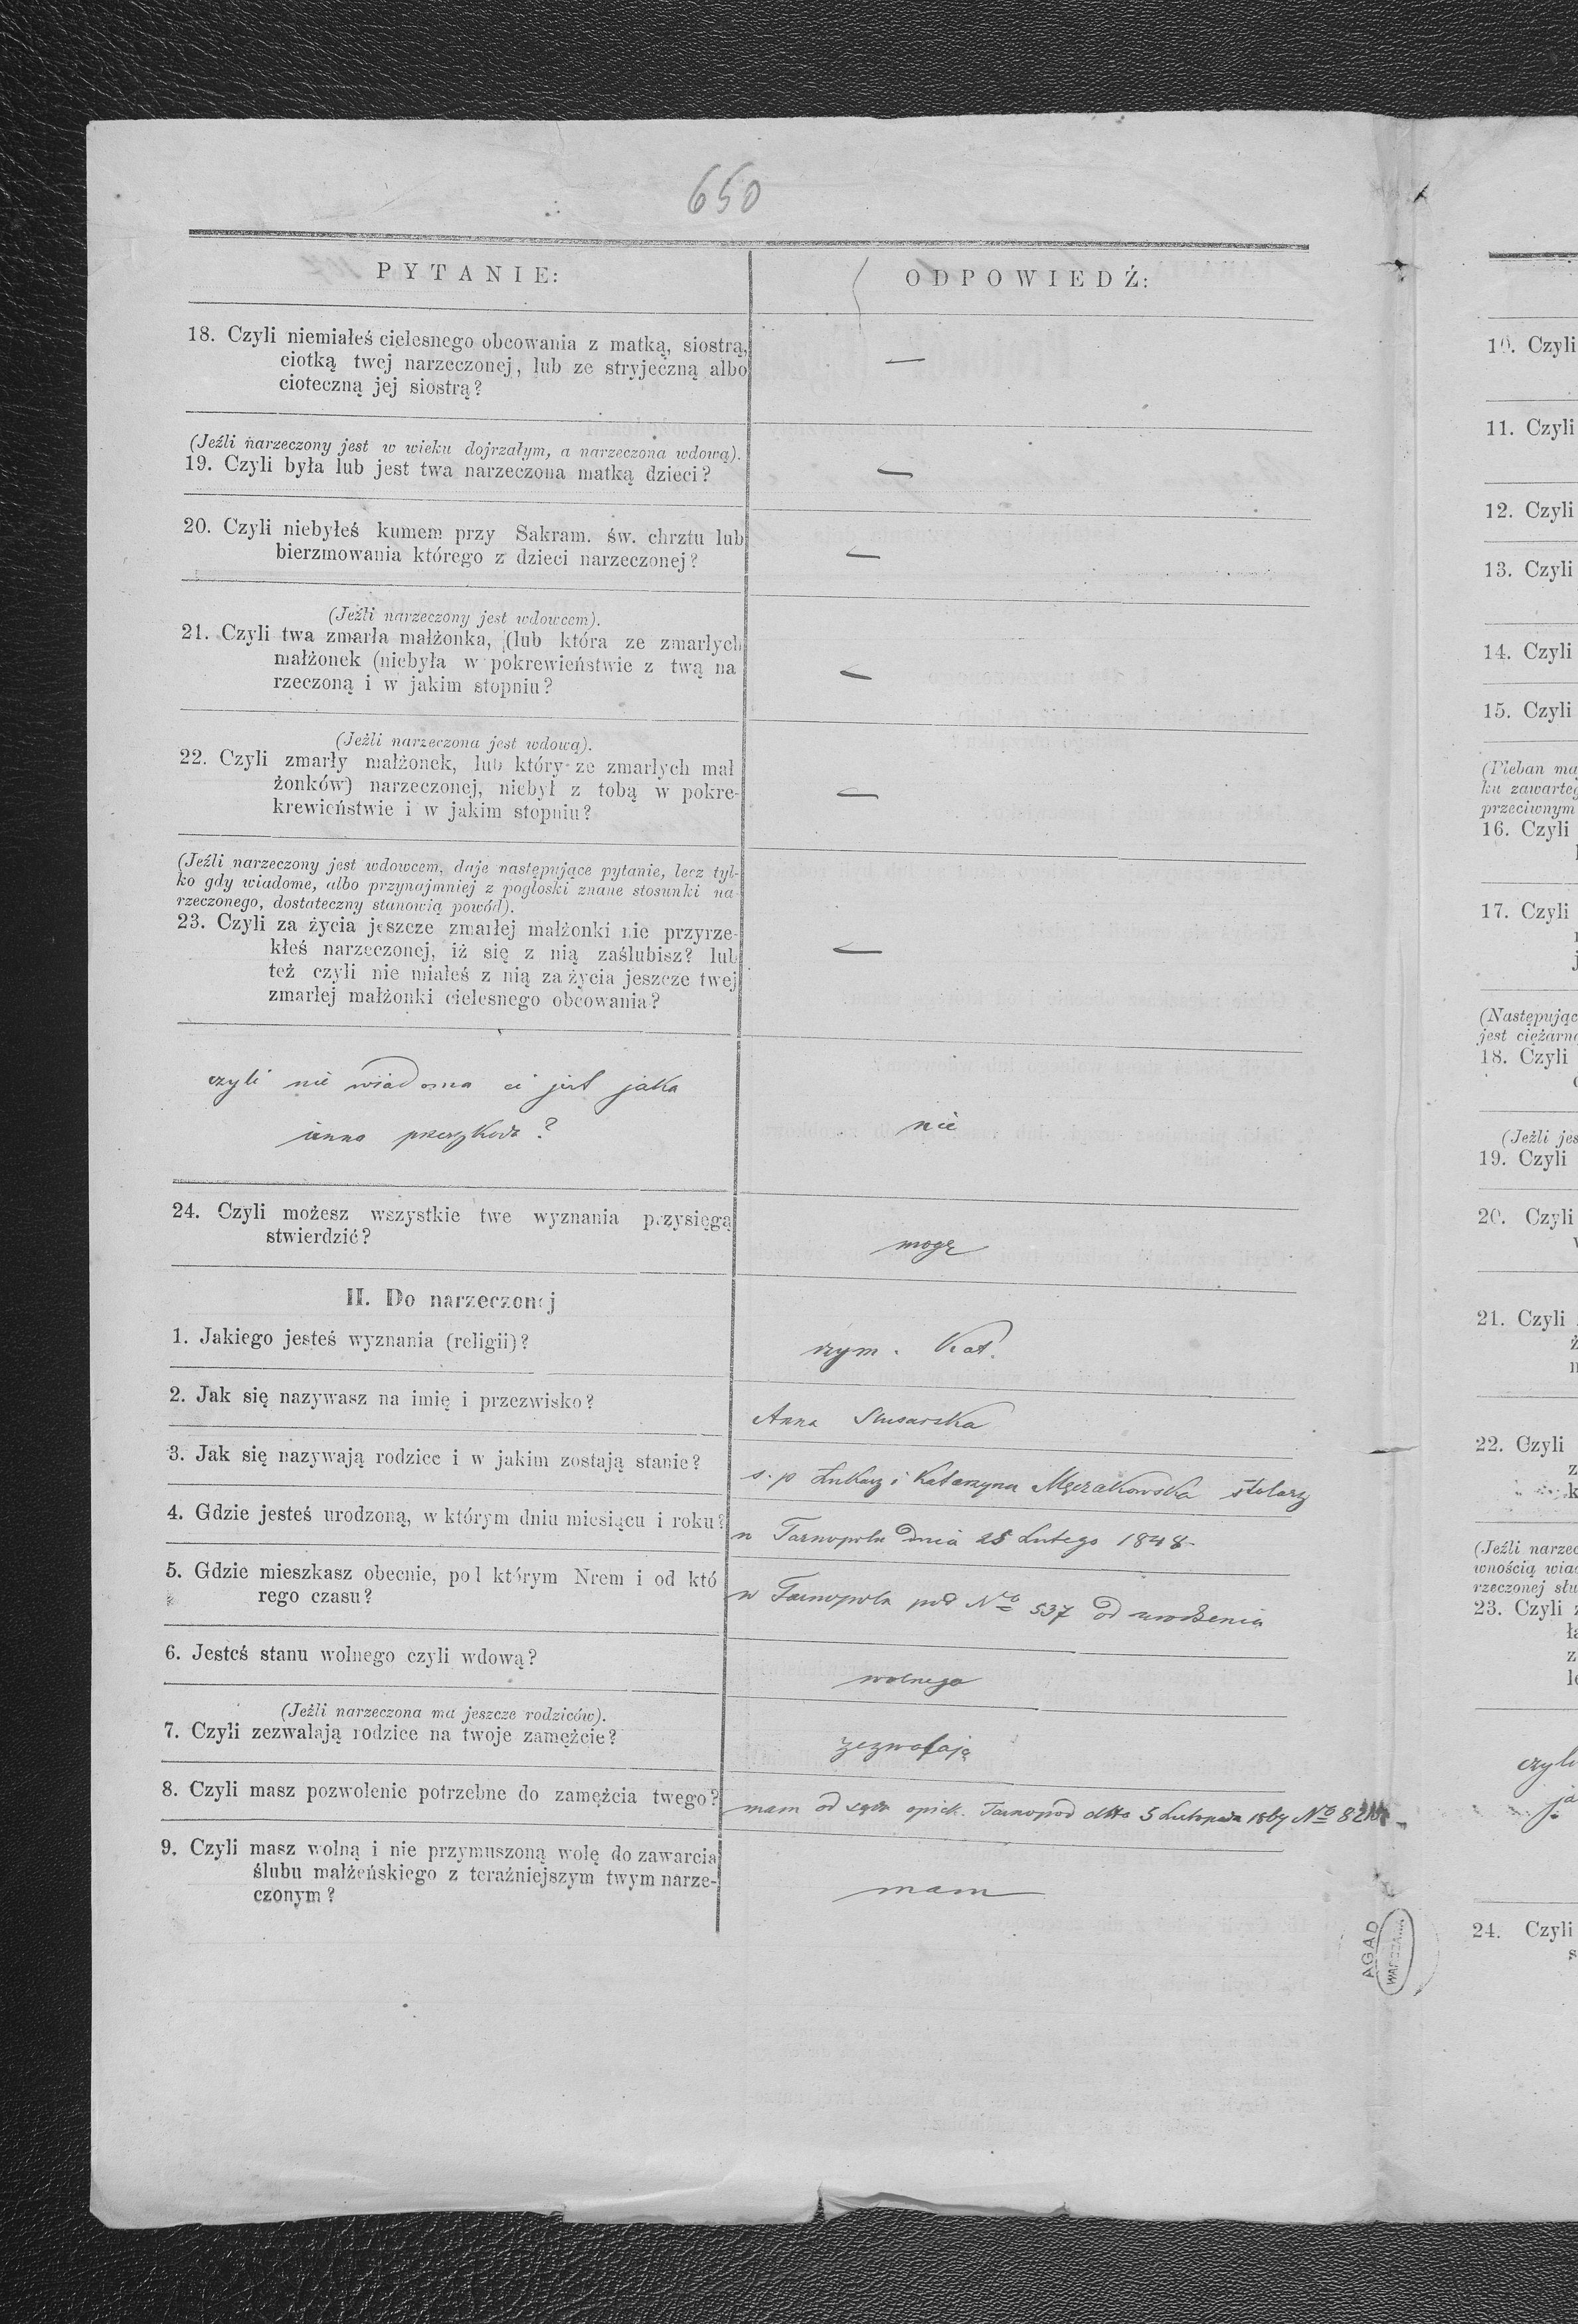 650
PYTANIE:
ODPOWIEDŹ:
18. Czyli niemiałeś cielesnego obcowania z matką, siostrą,
ciotką twej narzeczonej, lub ze stryjeczną albo
cioteczną jej siostrą?
—
(Jeźli narzeczony jest w wieku dojrzałym, a narzeczona wdową).
19. Czyli była lub jest twa narzeczona matką dzieci?
—
20. Czyli niebyłeś kumem przy Sakram. św. chrztu lub
bierzmowania którego z dzieci narzeczonej?
—
(Jeźli narzeczony jest wdowcem).
21. Czyli twa zmarła małżonka, (lub która ze zmarłych
małżonek (niebyła w pokrewieństwie z twą na
rzeczoną i w jakim stopniu?
—
(Jeżli narzeczona jest wdową).
22. Czyli zmarły małżonek, lub który ze zmarłych mał
żonków) narzeczonej, niebył z tobą w pokre-
krewieństwie i w jakim stopniu?
—
(Jeźli narzeczony jest wdowcem, daje następujące pytanie, lecz tyl-
ko gdy wiadome, albo przynajmniej z pogłoski znane stosunki na-
rzeczonego, dostateczny stanowią powód).
23. Czyli za życia jeszcze zmarłej małżonki nie przyrze-
kłeś narzeczonej, iż się z nią zaślubisz? lub
też czyli nie miałeś z nią za życia jeszcze twej
zmarłej małżonki cielesnego obcowania?
—
czyli nie wiadoma ci jest jaka
inna przeszkoda?
nie
24. Czyli możesz wszystkie twe wyznania przysięgą
stwierdzić?
mogę
II. Do narzeczonej
1. Jakiego jesteś wyznania (religii)?
rzym. Kat.
2. Jak się nazywasz na imię i przezwisko?
Anna Slusarska
3. Jak się nazywają rodzice i w jakim zostają stanie?
s. p Łukasz i Katarzyna Męczakowska stolarz
4. Gdzie jesteś urodzoną, w którym dniu miesiącu i roku?
w Tarnopolu dnia 25 Lutego 1848
5. Gdzie mieszkasz obecnie, pod którym Nrem i od któ
rego czasu?
w Tarnopolu pod No 537 od urodzenia
6. Jesteś stanu wolnego czyli wdową?
wolnego
(Jeżli narzeczona ma jeszcze rodziców).
7. Czyli zezwalają rodzice na twoje zamężcie?
zezwalają
8. Czyli masz pozwolenie potrzebne do zamężcia twego?
mam od sądu opiek. Tarnopod dtto 5 Listopada 1867 No
9. Czyli masz wolną i nie przymuszoną wolę do zawarcia
ślubu małżeńskiego z teraźniejszym twym narze-
czonym?
mam
AGAD
10. Czyli
11. Czyli
12. Czyli
13. Czyli
14. Czyli
15. Czyli
(Pleban ma
ku zawarteg
przeciwnym
16. Czyli
17. Czyli
j
(Następując
jest ciężarn
18. Czyli
(Jeżli jes
19. Czyli
20. Czyli
21. Czyli
ż
22. Czyli
z
k
(Jeźli narzec
wnością wiad
rzeczonej słu
23. Czyli z
ła
z
le
czyli
ja
24. Czyli
s